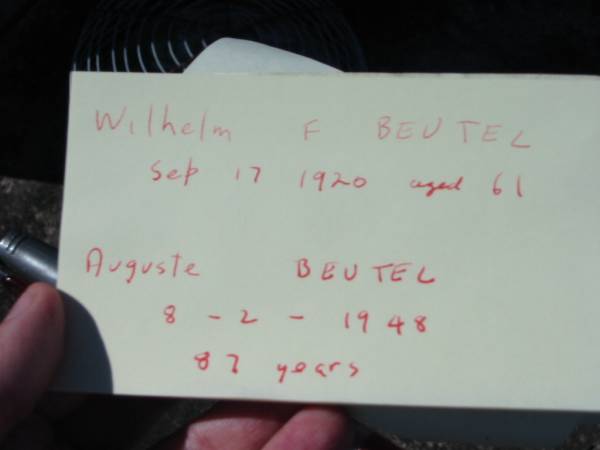 Wilhelm F BEUTEL
Sep 17 1920 aged 61
Auguste BEUTEL
8 - 2 - 1948
87 years